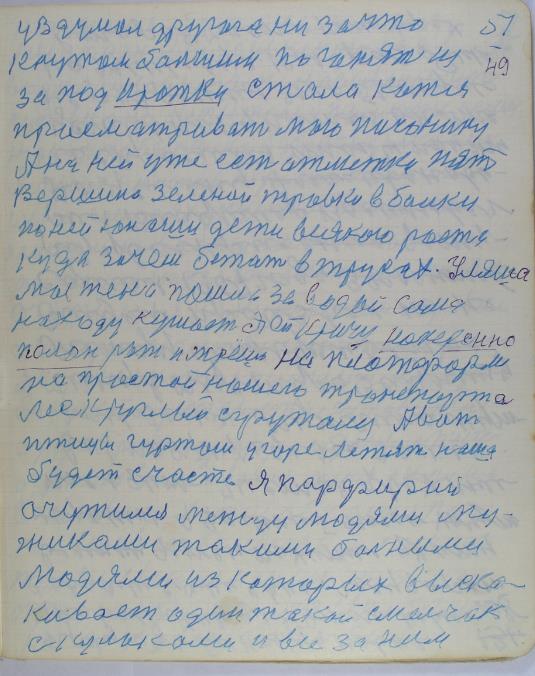 уздумал другога ни за что 51
Кнутом балиши погонят и 49
за под протки стала Катя
присматриват мою пичонику
А на ней уже ест атметка пят
Вершина зеленой травка в балки
по ней юнаши дети всякого роста
Куда зачем бегат в трусах. Уляша
мое тена пошла за водой сама
находу кушает Я ей кричу
полон рот и на платформи
на простой нашего транспорта
Лес круглый с Авот
птицы гуртом у горе летят наша
будет счасте я парфирий
очутился между людями му-
жиками такими болными
Людями из каторых выска-
кивает один такой смелчак
с кулаками и все за ним